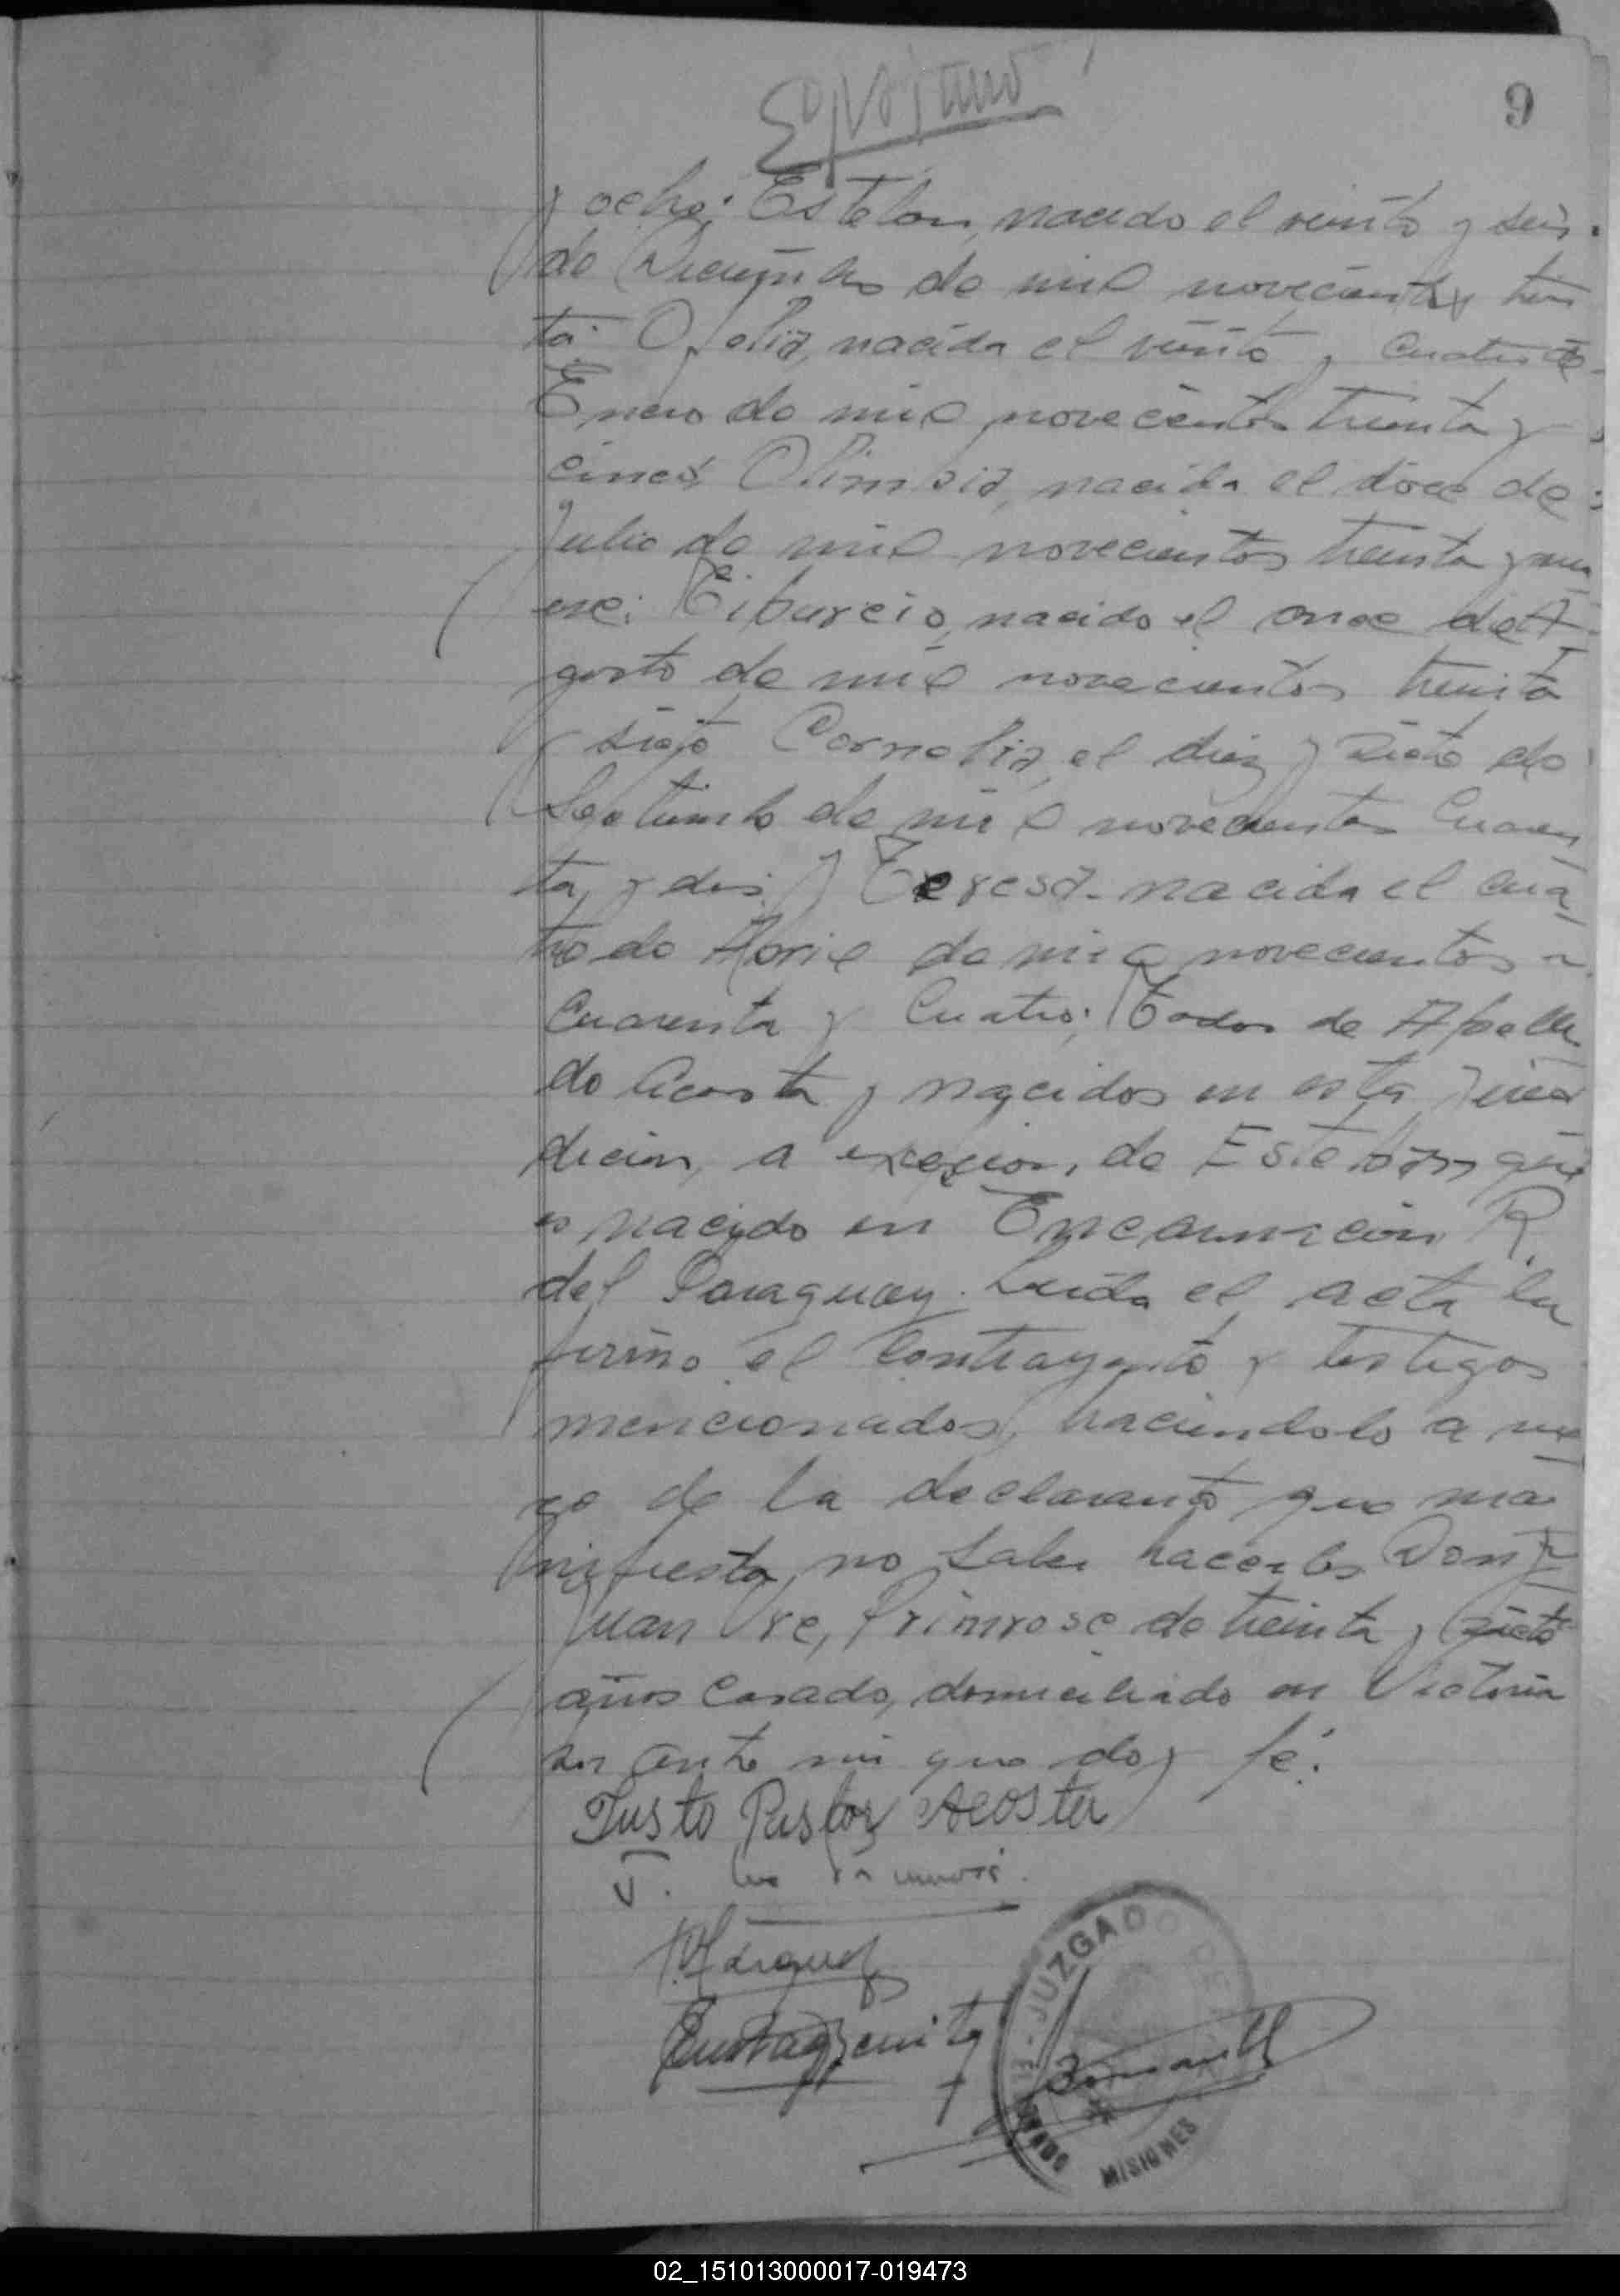 9
y ocho; Esteban, nacido el veinte y seis
de Diciembre de mil novecientos trein
ta; Ofelia, nacida el veinte y cuatro de
Enero de mil novecientos treinta y
cinco; Olimpia, nacida el doce de
Julio de mil novecientos treinta y nu
eve; Tiburcio, nacido el once de A-
gosto de mil novecientos treinta
y siete Cornelia, el diez y siete de
Septiembre de mil novecientos Cuaren
ta y dos; y Teresa nacida el cua
tro de Abril de mil novecientos
Cuarenta y Cuatro; Todos de Apelli
do Acosta y nacidos en esta juris
dicion, a de Esteban que
es nacido en Encarnación R.
del Paraguay. Leida el acta la
firmo el Contrayente y testigos
mencionados, haciendolo a rue
go de la declarante que ma
nifiesta no saber hacerlo Don
Juan Ore, Primrose de treinta y siete
años Casado, domiciliado en Victoria
por ante mi que doy fé.
Justo Pastor Acosta
JUZGADO DE
MISIONES
02_151013000017-019473